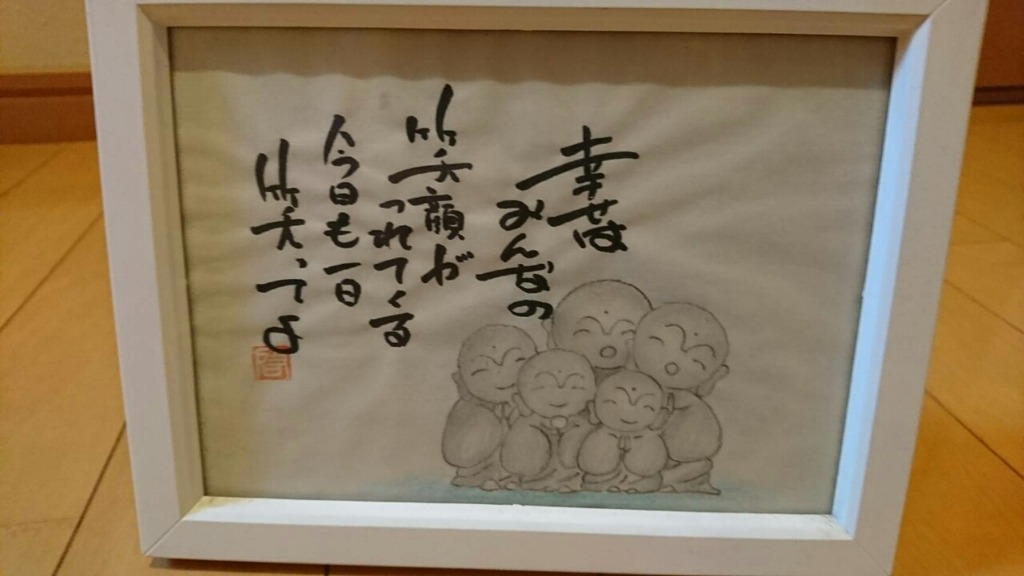 幸せは
みんなの
笑顔が
つれてくる
今日も一日
笑ってよ